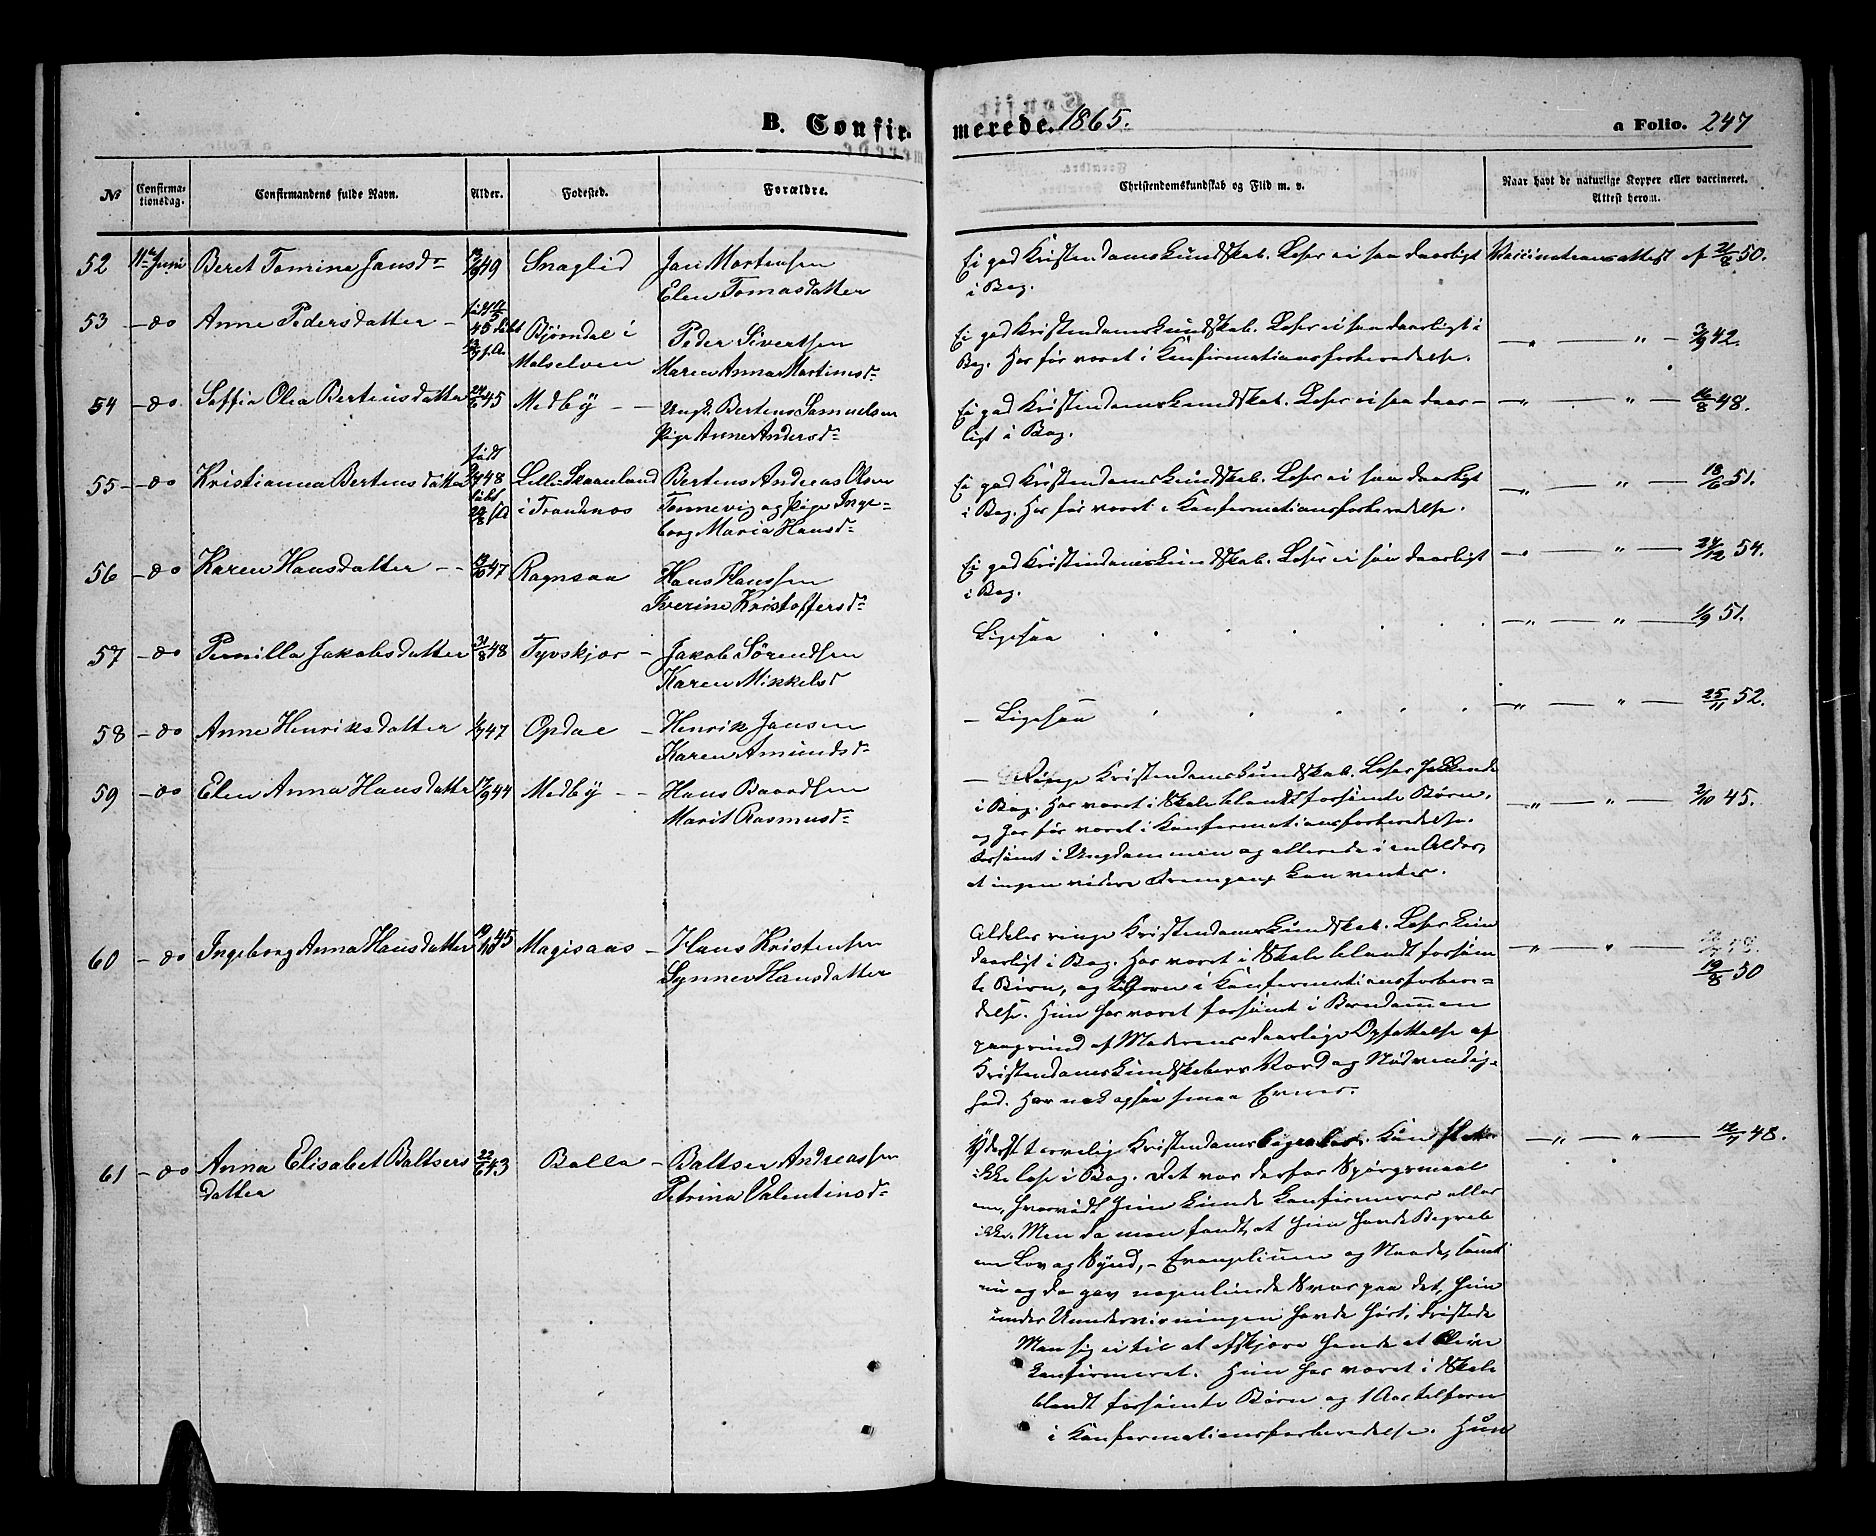 B. Confir-
merede. 1865.
a Folio. 247
No
Confirma-
tionsdag.
Confirmandens fulde Navn.
Alder.
Fødested.
Forældre.
Christendomskundskab og Flid m. v.
Naar havt de naturlige Kopper eller vaccineret.
Attest herom.
52 11te Juni Beret Tomina Jansdr 49 Snaglid Jan Mortensen
Elen Tomasdatter
Ei god Kristendomskundskab. Læser ei saa daarligt
i Bog.
Vaccinationsattest af 21/8 50.
53 - do Anne Pedersdatter - 45 Bjørndal i Peder Sivertsen
Maselven Maren Anna Martinusdr
Ei god Kristendomskundskab. Læser ei saa daarligt i
Bog. Har før været i Konfirmationsforberedelse.
- " - " - 3/9 42.
54 - do Soffia Olea Bertinsdatter 45 Medby - - Ungk. Bertens Samuelsen
Pige Anne Andersdr
Ei god Kristendomskundskab. Læser ei saa daar-
ligt i Bog.
- " - " - 16/8 48.
55 - do Kristianna Bertensdatter født 48 Lille Skaanland Bertens Andreas Olsen
i Trondenæs Tennevig og Pige Inge-
borg Maria Hansdr
Ei god Kristendomskundskab. Læser ei saa daarligt
i Bog. Har før været i Konfirmationsforberedelse.
- " - " - 18/6 51.
56 - do Karen Hansdatter - - 47 Ragnsaa Hans Hanssen
Iverine Kristoffersdr
Ei god Kristendomskundskab. Læser ei saa daarligt
i Bog.
- " - " - 27/12 54.
57 - do Pernilla Jakobsdatter 31/8 48 Tyvskjær - Jakob Sørendsen
Karen Mikkelsdr
Ligesaa
- " - " - 1/9 51.
58 - do Anne Henriksdatter 47 Opdal - Henrik Jansen
Karen Amundsdr
- Ligesaa
- " - " - 25/11 52.
59 - do Elen Anna Hansdatter 17/9 44 Medby - - Hans Baardsen
Marit Rasmusdr
- Ringe Kristendomskundskab. Læser
i Bog. Har været i Skole blandt forsømte Børn,
og har før været i Konfirmationsforberedelse.
Forsømt i Ungdommen og allerede i en Alder,
at ingen videre Fremgang kan ventes.
- " - " - 2/10 45.
60 - do Ingeborg Anna Hansdatter 19/10 45 Magisaas - Hans Kristensen
Synnev Hansdatter
Aldeles ringe Kristendomskundskab. Læser kun
daarligt i Bog. Har været i Skole blandt forsøm-
te Børn, og tilforn i Konfirmationsforbere-
delse. Hun har været forsømt i Barndommen
paagrund af Moderens daarlige Opfattelse af
Kristendomskundskabens Værd og Nødvendig-
hed. Har nok ogsaa smaa Evner.
- " - " - 19/8 50
61 - do Anna Elisabet Baltsers 22/6 43 Balla - Baltser Andreassen
datter Petrina Valentinsdr
Yderst tarvelig Kristendomsbegreber. Kund
ikke læse i Bog. Det var derfor Spørgsmaal
om, hvorvidt hun kunde konfirmeres eller
ikke. Men da man fandt, at hun havde Begreb
om Lov og Synd, - Evangelium og Naade, samt
nu og da gav nogenlunde Svar paa det, hun
under Undervisningen havde hørt, dristede
Man sig ei til at afskjære hende at blive
konfirmeret. Hun har været i Skole
blandt forsømte Børn og 1 Aar tilforn
i Konfirmationsforberedelse. Hun
- " - " - 12/7 48.